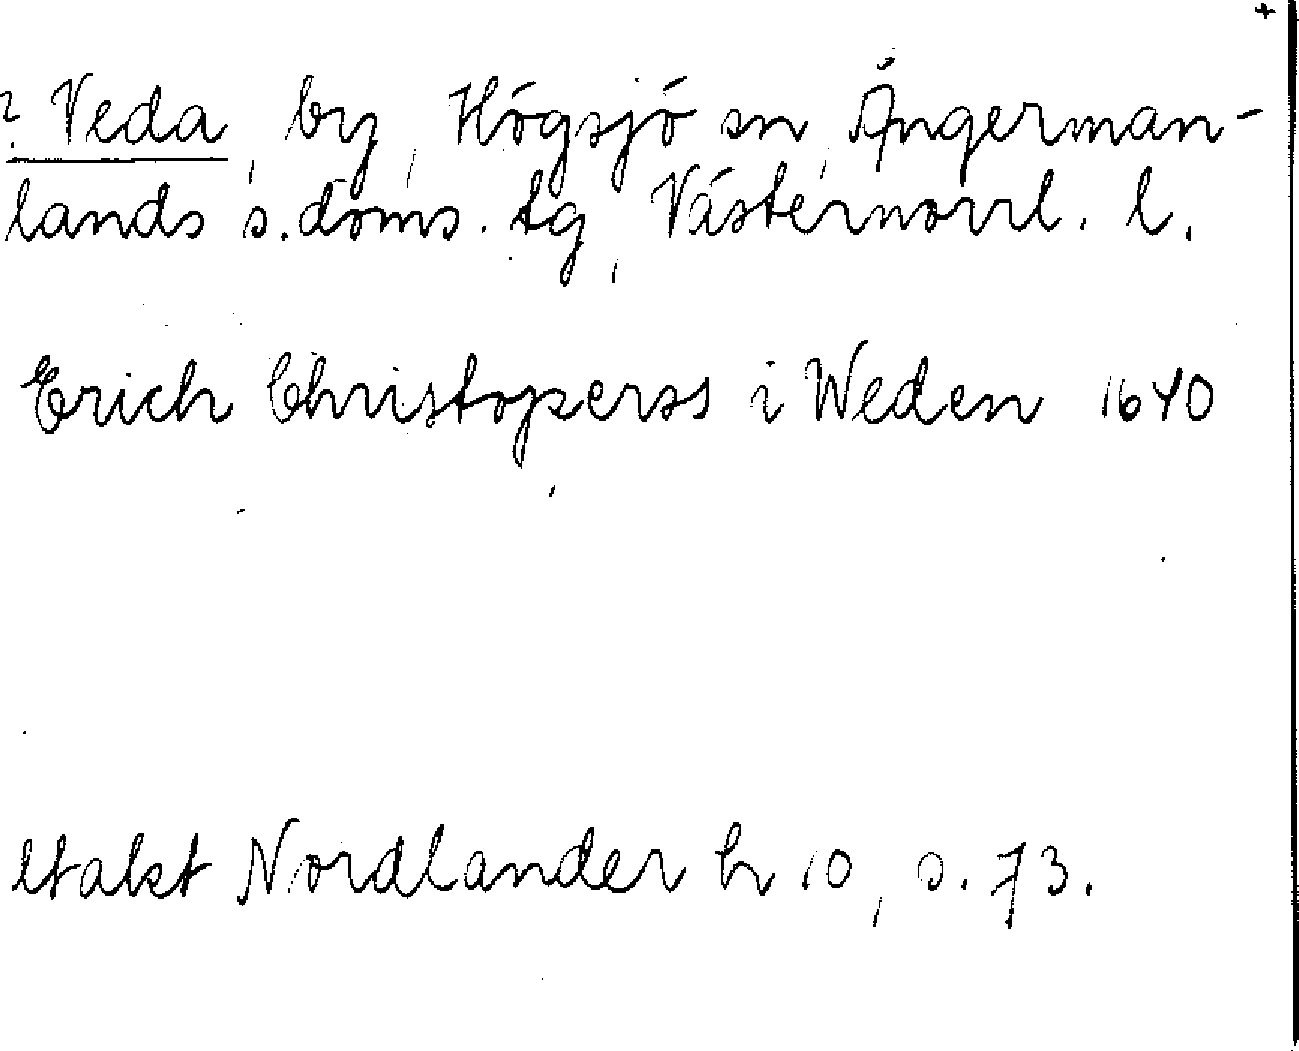 +
? Veda, by, Högsjö sn, Ångerman-
lands s. doms. tg, Västernorrl. l.
Erich Christoperss i Weden 1640
Utakt Nordlander h 10, s. 73.